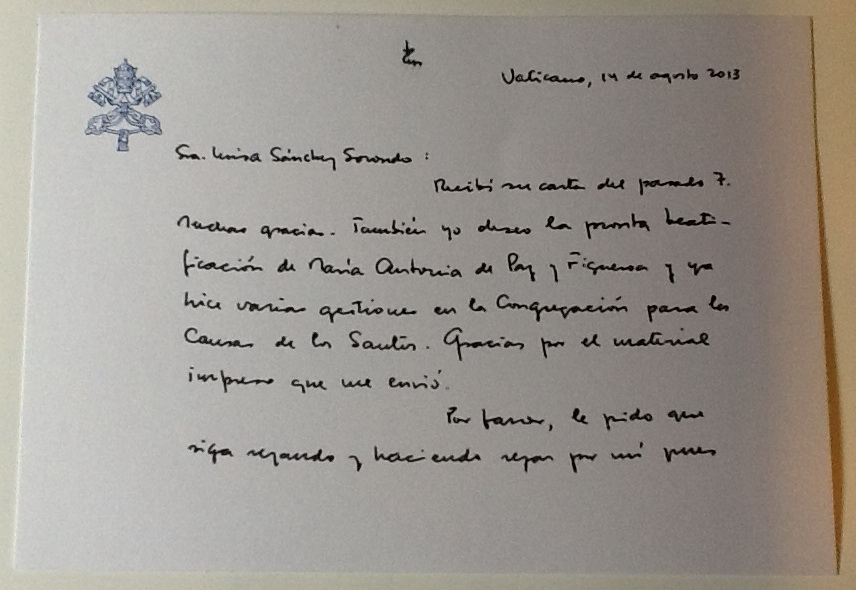 Vaticano, 14 de agosto 2013
Sra. Luisa Sánchez Sorondo :
Recibí su carta del pasado 7.
Muchas gracias. También yo deseo la pronta beati-
ficación de María Antonia de Paz y Figueroa y ya
hice varias gestiones en la Congregación para las
Causas de los Santos. Gracias por el material
impreso que me envió.
Por favor, le pido que
siga rezando y haciendo rezar por mí pues